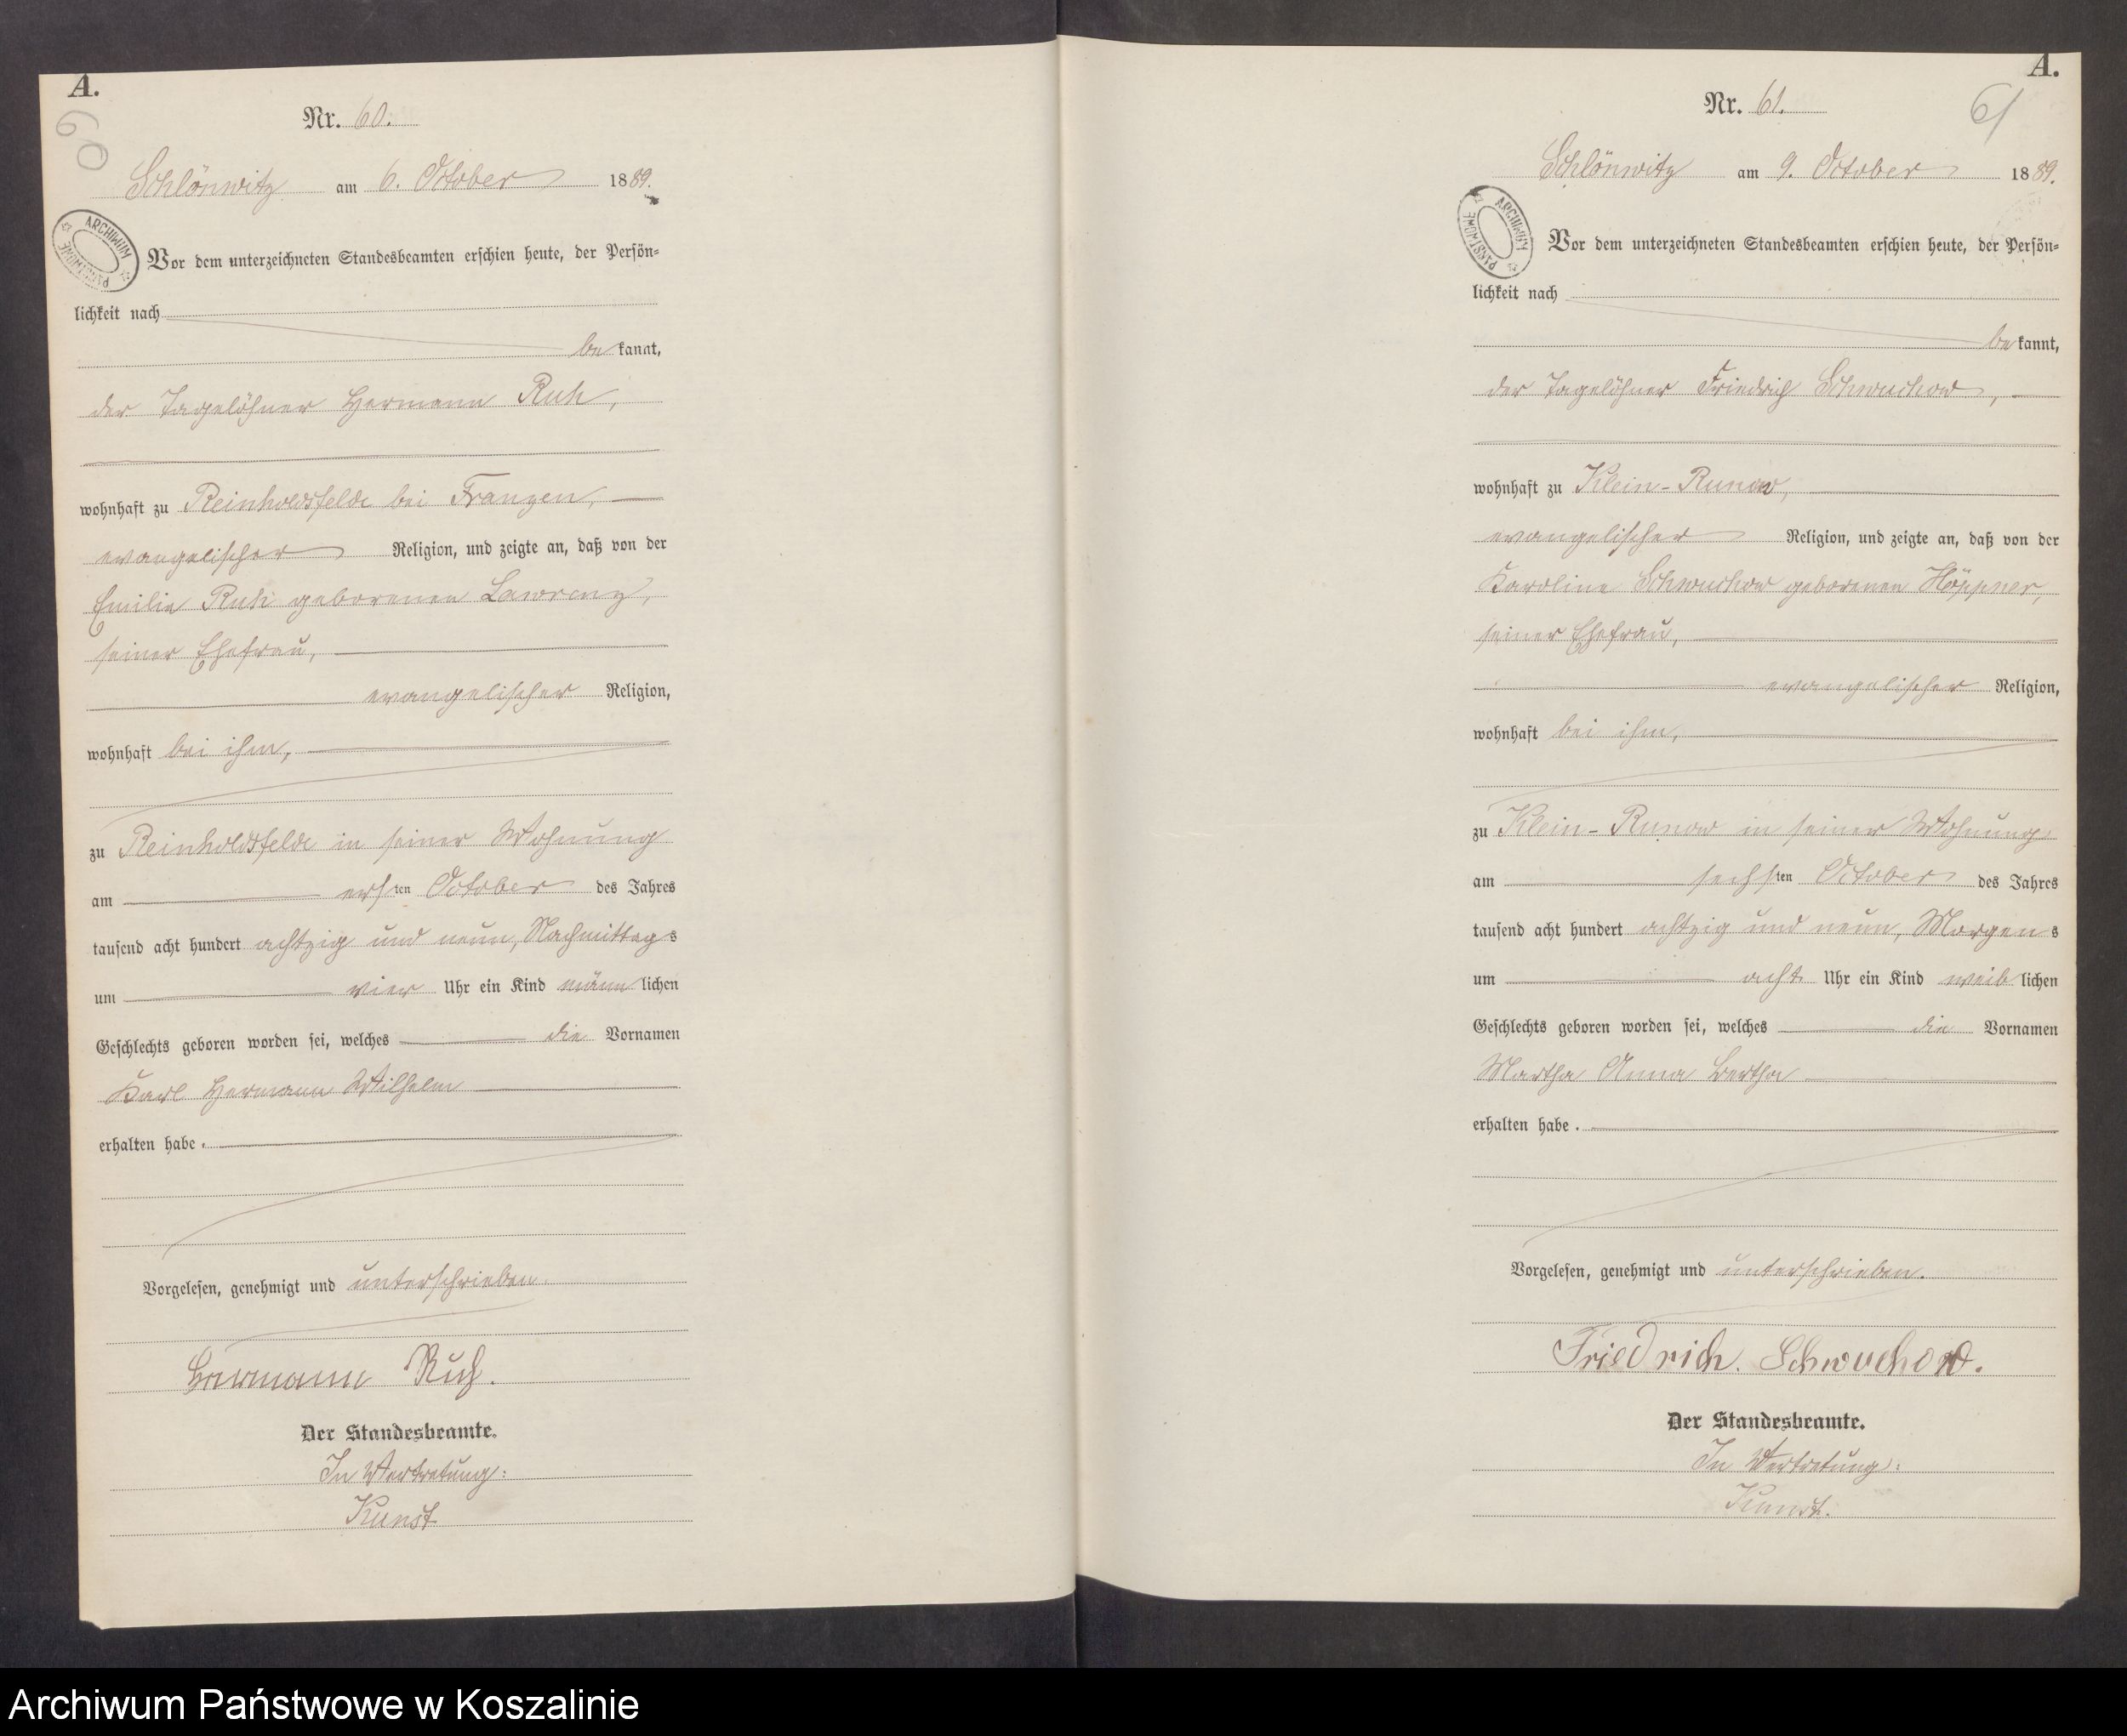 A.
60
Nr. 60.
Schlönwitz am 6. October 1889.
ARCHIWUM PAŃSTWOWE
Vor dem unterzeichneten Standesbeamten erschien heute, der Persön-
lichkeit nach
bekannt,
der Tagelöhner Hermann Ruh,
wohnhaft zu Reinholdsfelde bei Franzen,
evangelischer Religion, und zeigte an, daß von der
Emilie Ruh geborenen Lawrenz,
seiner Ehefrau,
evangelischer Religion,
wohnhaft bei ihm,
zu Reinholdsfelde in seiner Wohnung
am ersten October des Jahres
tausend acht hundert achtzig und neun, Nachmittags
um vier Uhr ein Kind männlichen
Geschlechts geboren worden sei, welches die Vornamen
Karl Hermann Wilhelm
erhalten habe.
Vorgelesen, genehmigt und unterschrieben.
Hermann Ruh.
Der Standesbeamte.
In Vertretung:
Kunst
A.
61
Nr. 61.
Schlönwitz am 9. October 1889.
ARCHIWUM PAŃSTWOWE
Vor dem unterzeichneten Standesbeamten erschien heute, der Persön-
lichkeit nach
bekannt,
der Tagelöhner Friedrich Schwuchow,
wohnhaft zu Klein-Runow,
evangelischer Religion, und zeigte an, daß von der
Karoline Schwuchow geborenen Höppner,
seiner Ehefrau,
evangelischer Religion,
wohnhaft bei ihm,
zu Klein-Runow in seiner Wohnung
am sechsten October des Jahres
tausend acht hundert achtzig und neun, Morgens
um acht Uhr ein Kind weiblichen
Geschlechts geboren worden sei, welches die Vornamen
Martha Anna Bertha
erhalten habe.
Vorgelesen, genehmigt und unterschrieben.
Friedrich. Schwuchow.
Der Standesbeamte.
In Vertretung:
Kunst.
Archiwum Państwowe w Koszalinie